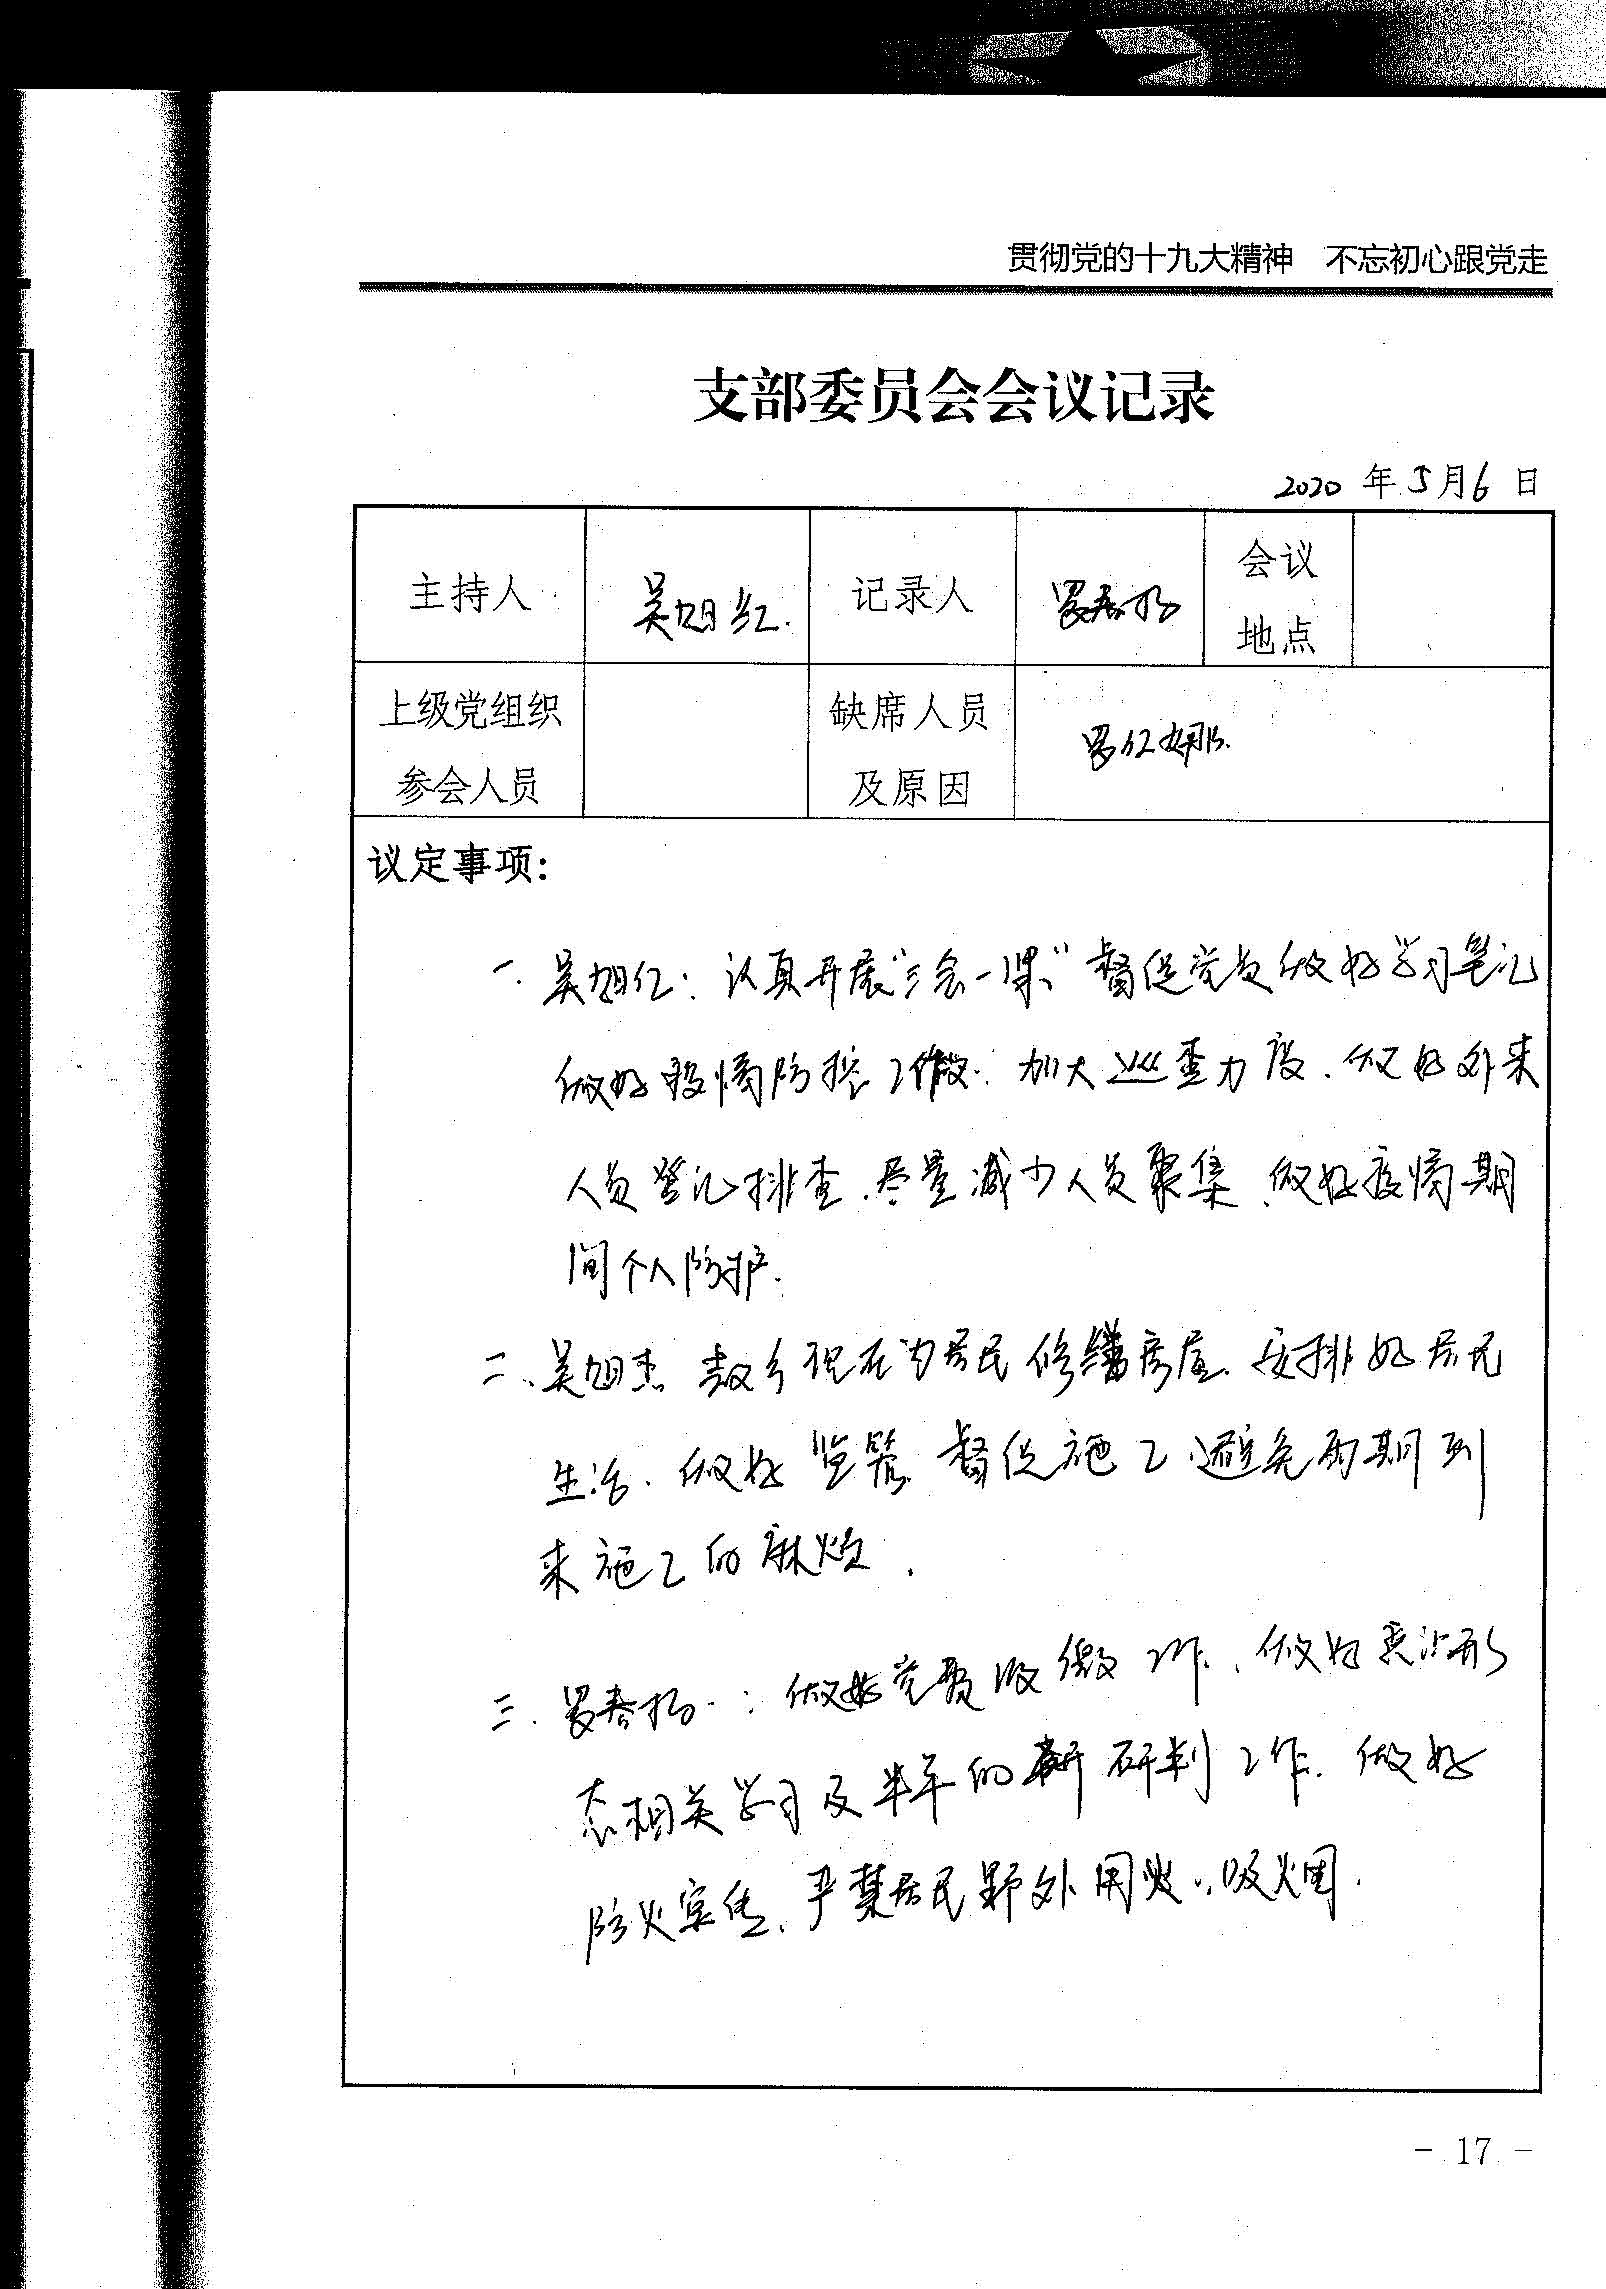 贯彻党的十九大精神 不忘初心跟党走
支部委员会会议记录
2020 年 5 月 6 日
主持人 吴旭红. 记录人 罗春扬 会议地点
上级党组织参会人员 缺席人员及原因 罗红娜.
议定事项:
一. 吴旭红: 认真开展“三会一课” 督促党员做好学习笔记
做好疫情防控工作. 加大巡查力度. 做好外来
人员登记排查. 尽量减少人员聚集. 做好疫情期
间个人防护.
二、吴旭杰 现在为居民修缮房屋. 安排好居民
生活. 做好监管 督促施工. 避免雨期到
来施工的麻烦.
三. 罗春扬: 做好党费收缴工作. 做好意识形
态相关学习及半年的研判工作. 做好
防火宣传、严禁居民野外用火、吸烟.
- 17 -